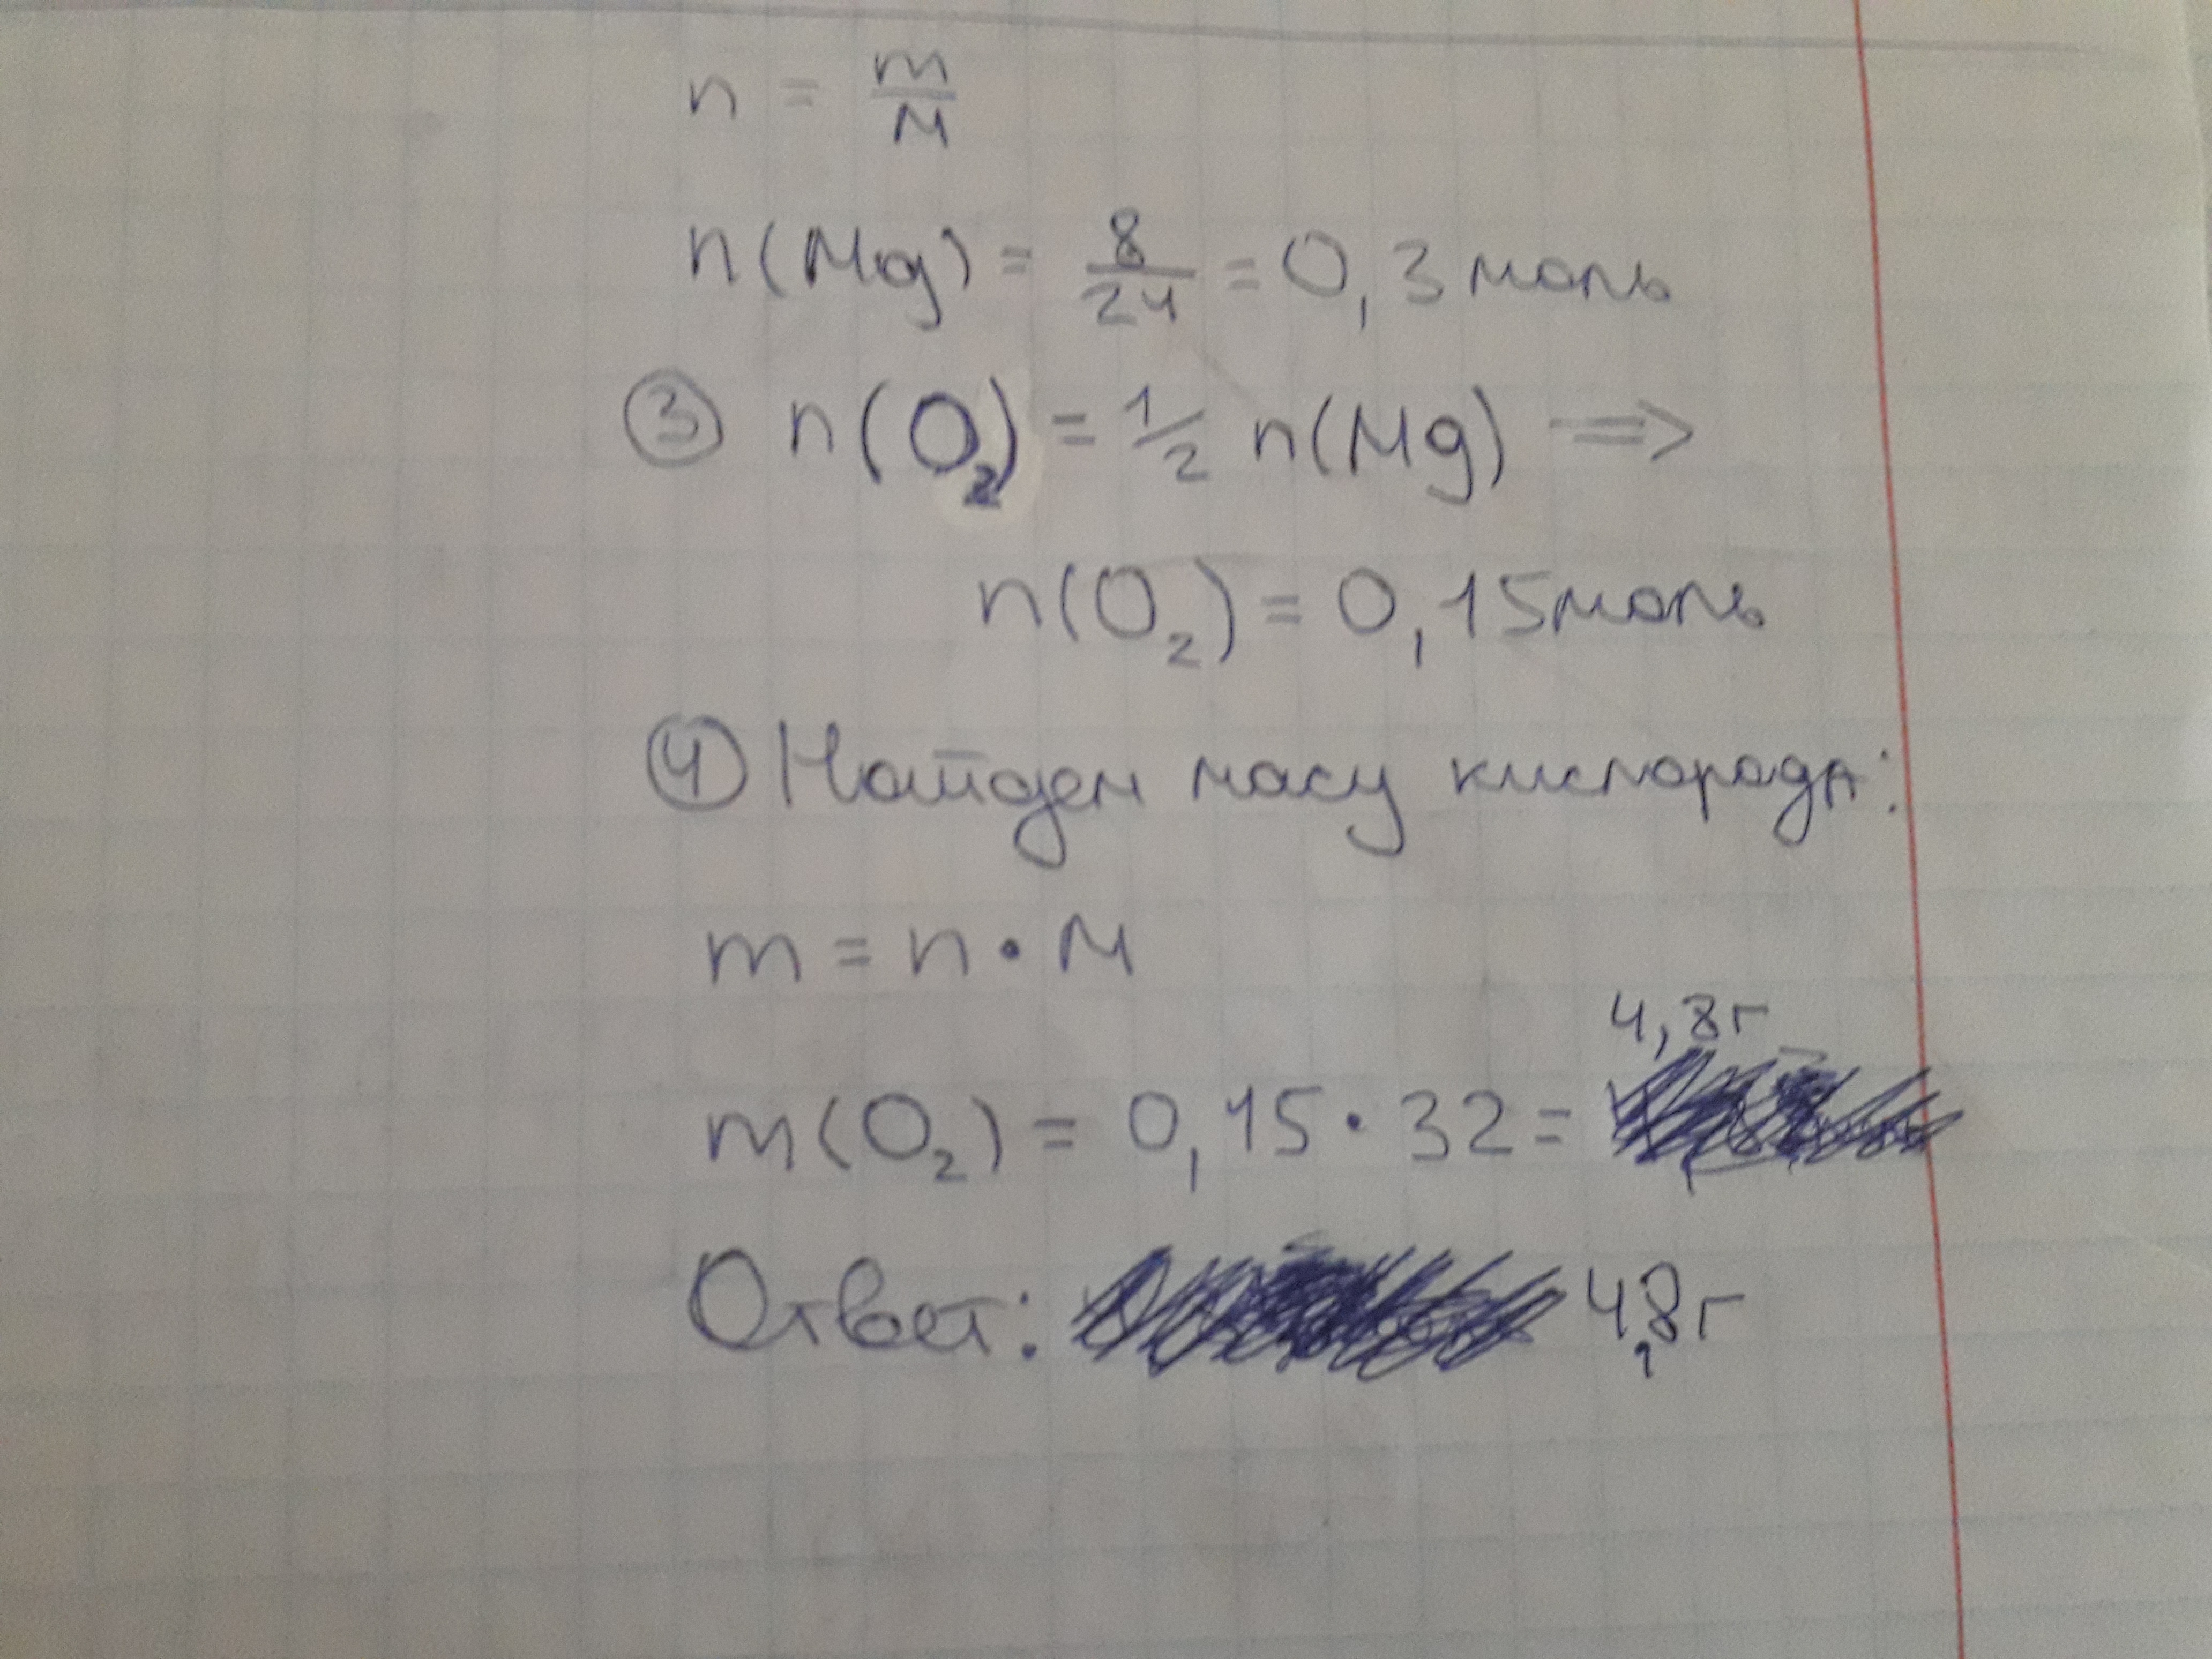 n = m/M
n(Mg) = 8/24 = 0,3 моль
③ n(O₂) = 1/2 n(Mg) ⇒
n(O₂) = 0,15 моль
④ Найдем масу кислорода:
m = n · M
m(O₂) = 0,15 · 32 = 4,8 г
Ответ: 4,8 г